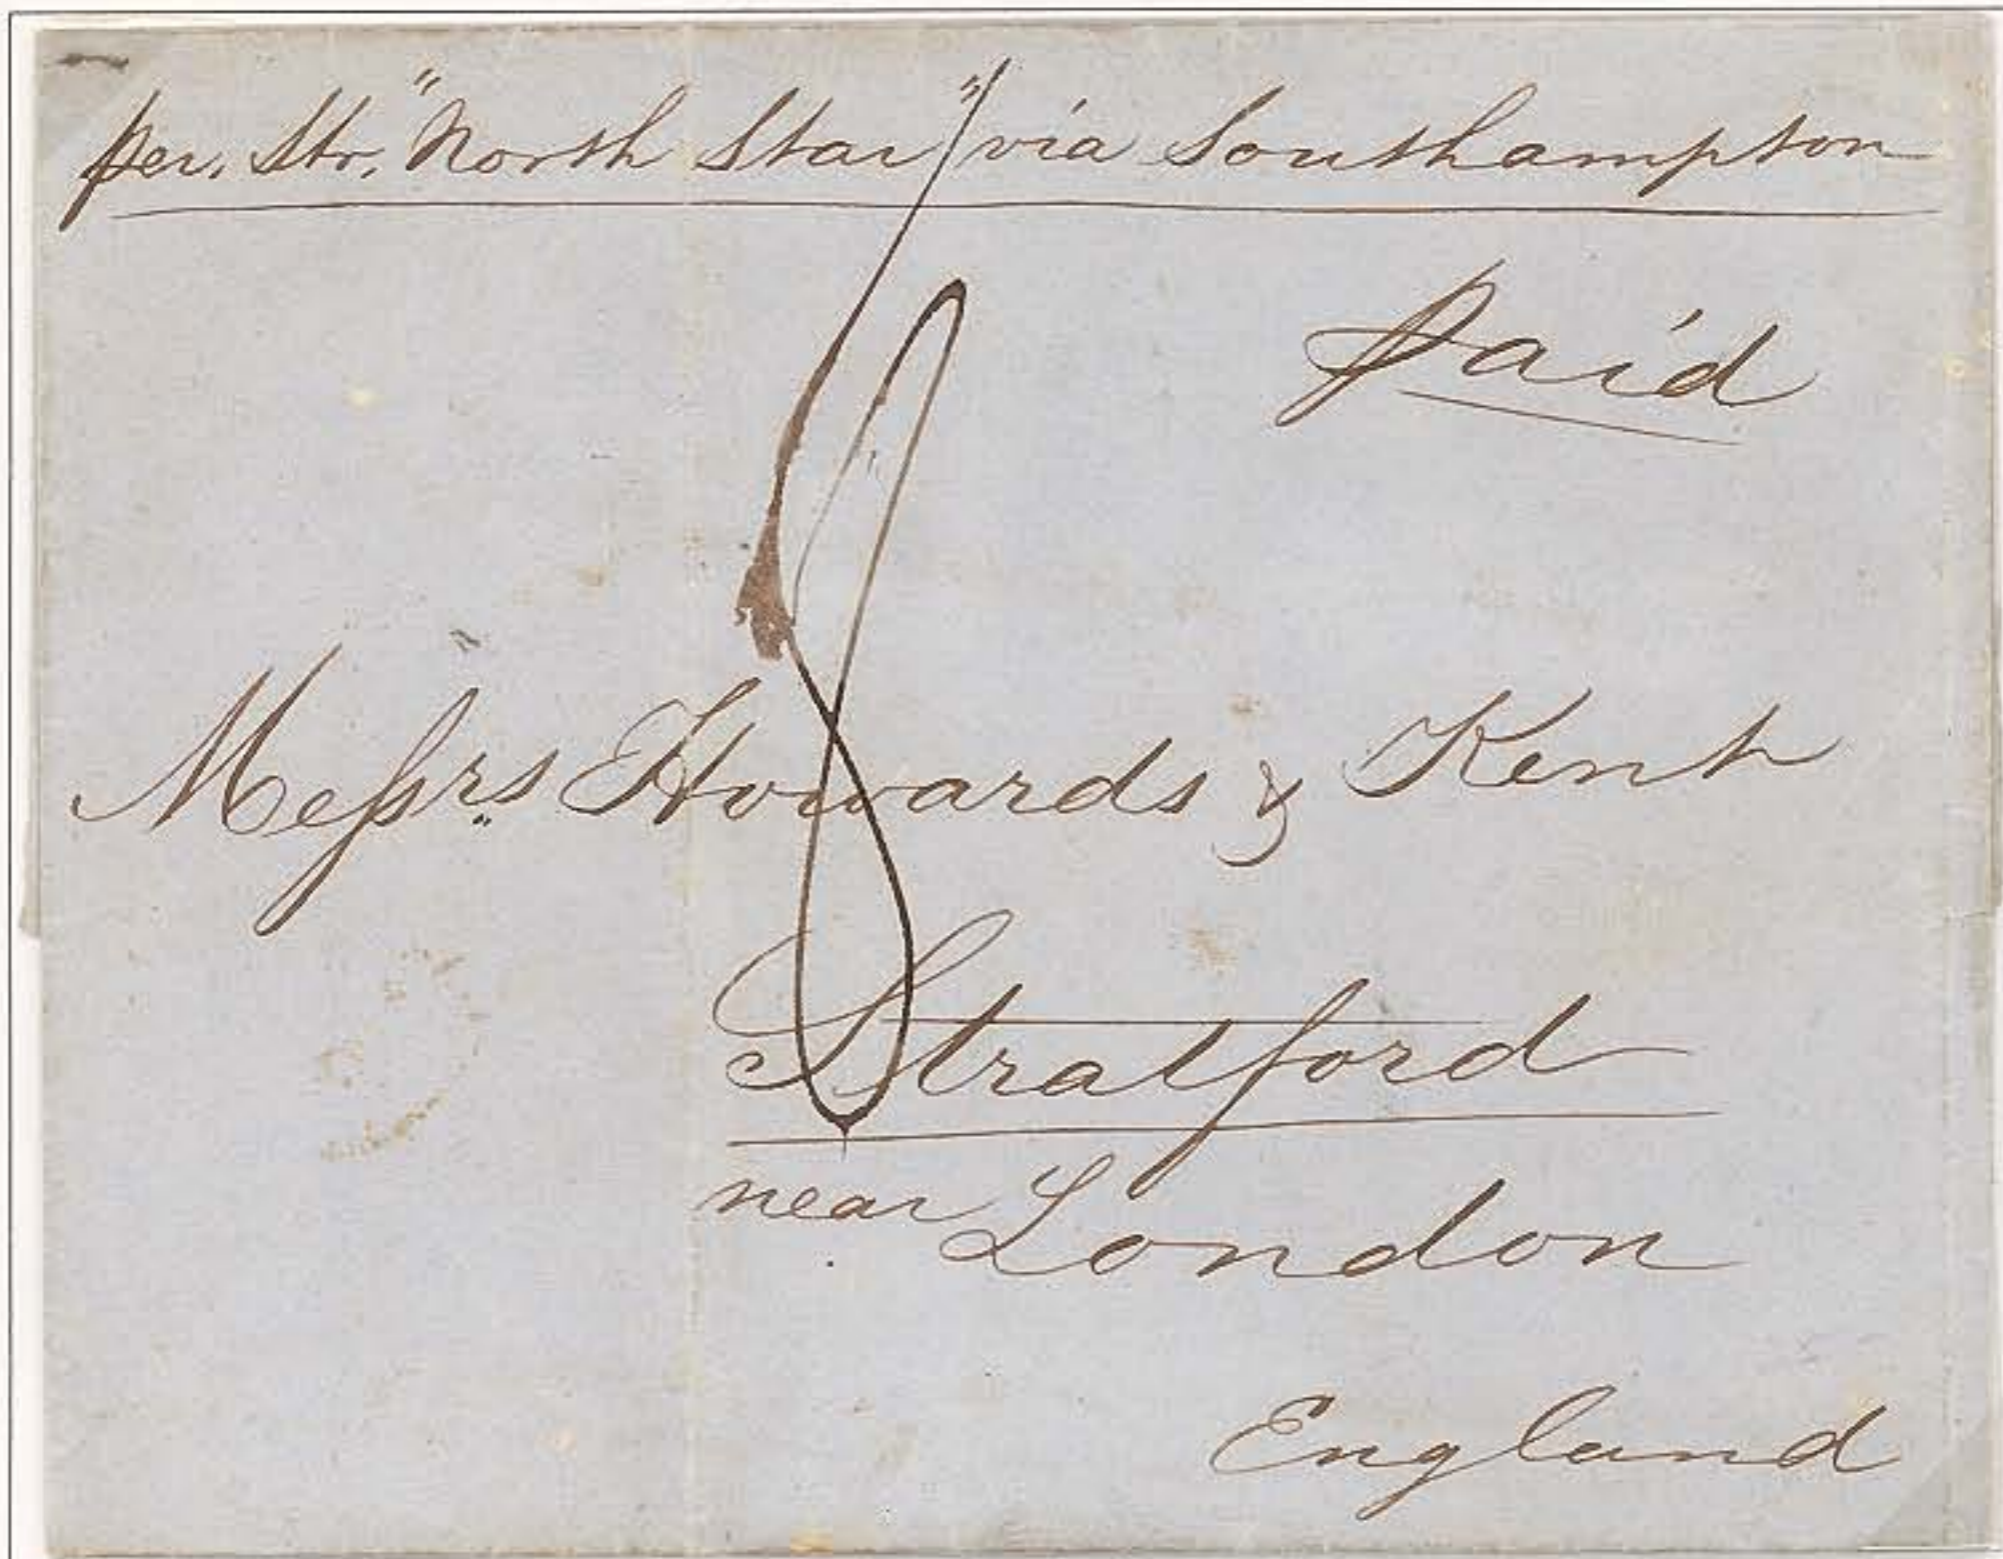 per. Str, "North Star" via Southampton
Paid
8
Messrs Howards & Kent
Stratford
near London
England